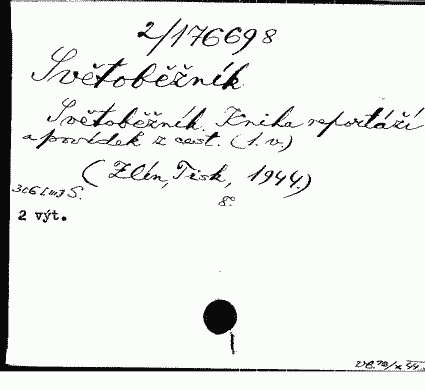 2/176698
Světoběžník
Světoběžník. Kniha reportáží
a povídek z cest. (1. v.)
(Zlín, Tisk, 1944.)
8°
2 výt.